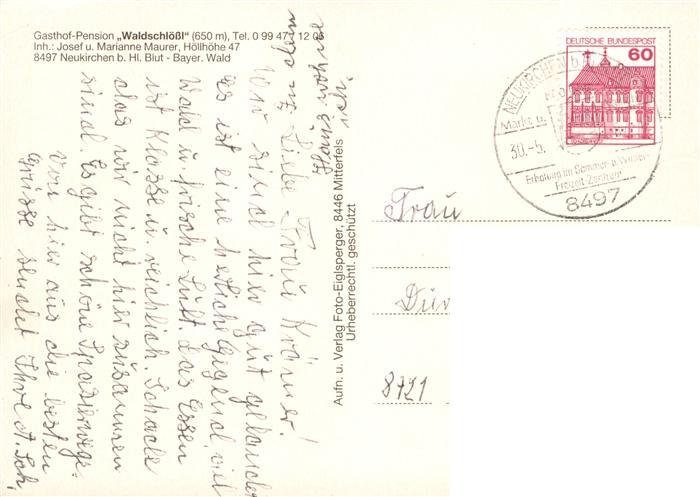 Gasthof-Pension „Waldschlößl" (650 m), Tel. 0 99 47/ 12 06
Inh.: Josef u. Marianne Maurer, Höllhöhe 47
8497 Neukirchen b. Hl. Blut - Bayer. Wald
Liebe Frau Krämer!
Wir sind hier gut gelandet
es ist eine herrliche Gegend, viel
Wald u. frische Luft. Das Essen
ist Klasse u. reichlich. Schade
das wir nicht hier zusammen
sind. Es gibt schöne Spazierwege.
Von hier aus die besten
Grüsse sendet Ihre A. Sch.
Aufn. u. Verlag Foto-Eiglsperger, 8446 Mitterfels
Urheberrechtl. geschützt
DEUTSCHE BUNDESPOST
60
NEUKIRCHEN b.
Markt u.
30.-5.
Erholung im Sommer u. Winter
Freizeit-Zentrum
8497
Frau
8721